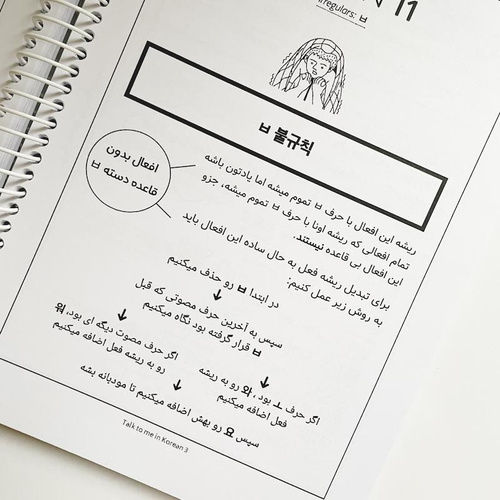 11
Irregulars: ㅂ
ㅂ 불규칙
افعال بدون
قاعده دسته ㅂ
ریشه این افعال با حرف ㅂ تموم میشه اما یادتون باشه
تمام افعالی که ریشه اونا با حرف ㅂ تموم میشه، جزو
این افعال بی قاعده نیستند.
برای تبدیل ریشه فعل به حال ساده این افعال باید
به روش زیر عمل کنیم:
در ابتدا ㅂ رو حذف میکنیم
سپس به آخرین حرف مصوتی که قبل
ㅂ قرار گرفته بود نگاه میکنیم
اگر حرف ㅗ بود، 와 رو به ریشه
فعل اضافه میکنیم
اگر حرف مصوت دیگه ای بود، 워
رو به ریشه فعل اضافه میکنیم
سپس 요 رو بهش اضافه میکنیم تا مودبانه بشه
Talk to me in Korean 3